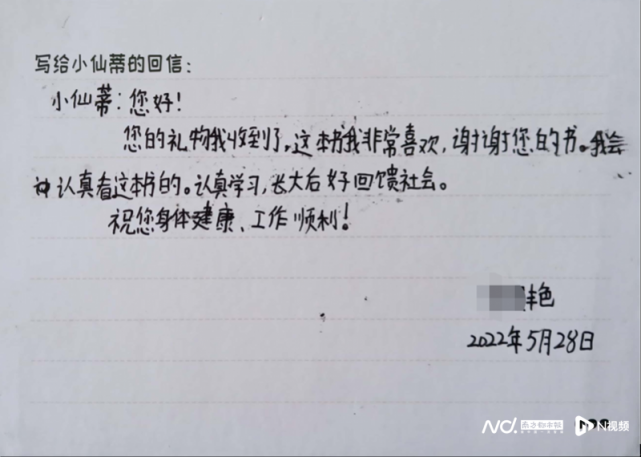 写给小仙蒂的回信:
小仙蒂:您好!
您的礼物我收到了。这本书我非常喜欢,谢谢您的书。我会
认真看这本书的。认真学习,长大后好回馈社会。
祝您身体健康、工作顺利!
丰色
2022年5月28日
N视频